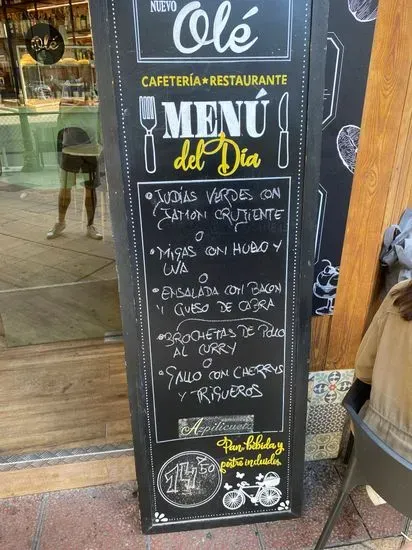 Olé
NUEVO
Olé
CAFETERÍA★RESTAURANTE
MENÚ
del Día
• JUDIAS VERDES CON
JAMON CRUJIENTE
O
• MIGAS CON HUEVO Y
UVA
O
• ENSALADA CON BACON
Y QUESO DE CABRA
• BROCHETAS DE POLLO
AL CURRY
O
• GALLO CON CHERRYS
Y TRIGUEROS
Azpilicueta
Pan, bebida y
postre incluidos
14'50